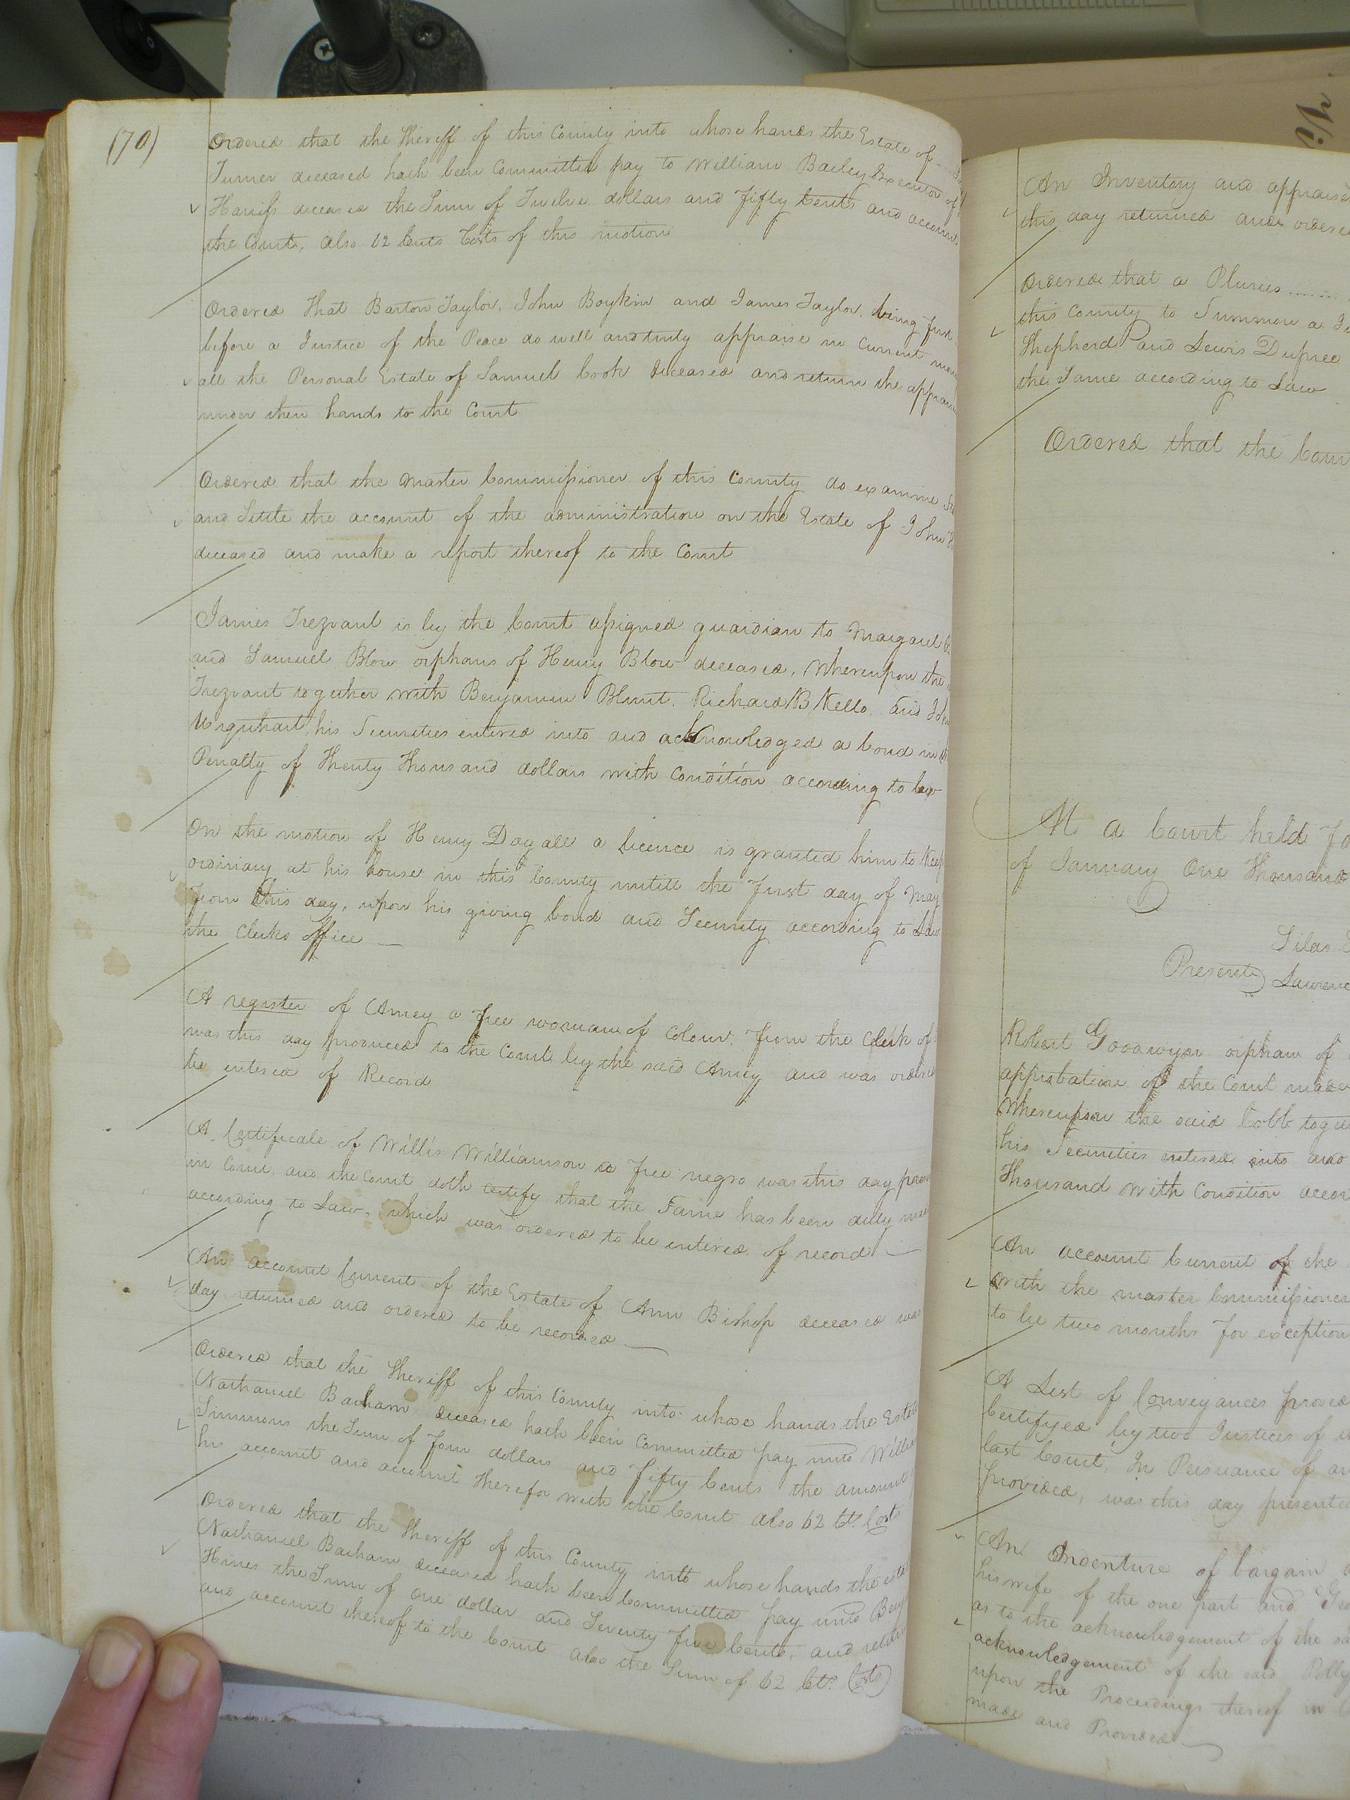 (70)
Ordered that the Sheriff of this County into whose hands the Estate of
Turner deceased hath been Committed pay to William Bailey Executor of
Harriss deceased the Sum of Twelve dollars and Fifty Cents and account
the Court, also 62 Cents Costs of this motion
Ordered That Barton Taylor, John Boykin and James Taylor, being first
before a Justice of the Peace do well and truly appraise in Current
all the Personal Estate of Samuel Cook deceased and return the
under their hands to the Court
Ordered that the Master Commissioner of this County do examine
and Settle the account of the administration on the Estate of John
deceased and make a report thereof to the Court
James Trezvant is by the Court assigned guardian to Margaret
and Samuel Blow orphans of Henry Blow deceased, Whereupon the
Trezvant together with Benjamin Blunt, Richard B Kello, and John
Urquhart his Securities entered into and acknowledged a bond in
Penalty of Thenty Thousand dollars with Condition according to law
On the motion of Henry a licence is granted him to Keep
ordinary at his house in this County untill the First day of May
From this day, upon his giving bond and Security according to Law
the Clerks office —
A register of Amey a Free woman of Colour, From the Clerk of
was this day produced to the Court by the said Amey and was
be entered of Record
A Certificate of Willis Williamson a Free negro was this day
in Court and the Court doth certify that the Same has been duly
according to Law, which was ordered to be entered of record —
An account Current of the Estate of Ann Bishop deceased was
day returned and ordered to be recorded —
Ordered that the Sheriff of this County into whose hands the
Nathaniel Barham deceased hath been Committed pay unto
Simmons the Sum of Four dollars and Fifty Cents the amount
his account and account therefor with the Court also 62 Cts. Costs
Ordered that the Sheriff of this County into whose hands the
Nathaniel Barham deceased hath been Committed pay unto
Hines the Sum of one dollar and Seventy Five Cents, and
and account thereof to the Court also the Sum of 62 Cts. Costs
An Inventory and
this day returned and
Ordered that a Pluries
this County to Summon a
Shepherd and Lewis Dupree
the Same according to Law
Ordered that the
At a Court held
of January One Thousand
Silas
Present Lawrence
Robert Goodwyn orphan of
approbation of the Court made
Whereupon the said Cobb
his Securities entered into and
Thousand With Condition
An account Current of the
with the master Commissioner
to lie two months For exception
A List of Conveyances proved
Certifyed by two Justices of
last Court, In Persuance of
provided, was this day
An Indenture of bargain
his wife of the one part and
as to the acknowledgement of the
acknowledgement of the said Polly
upon the Proceedings thereof
made and Provided —